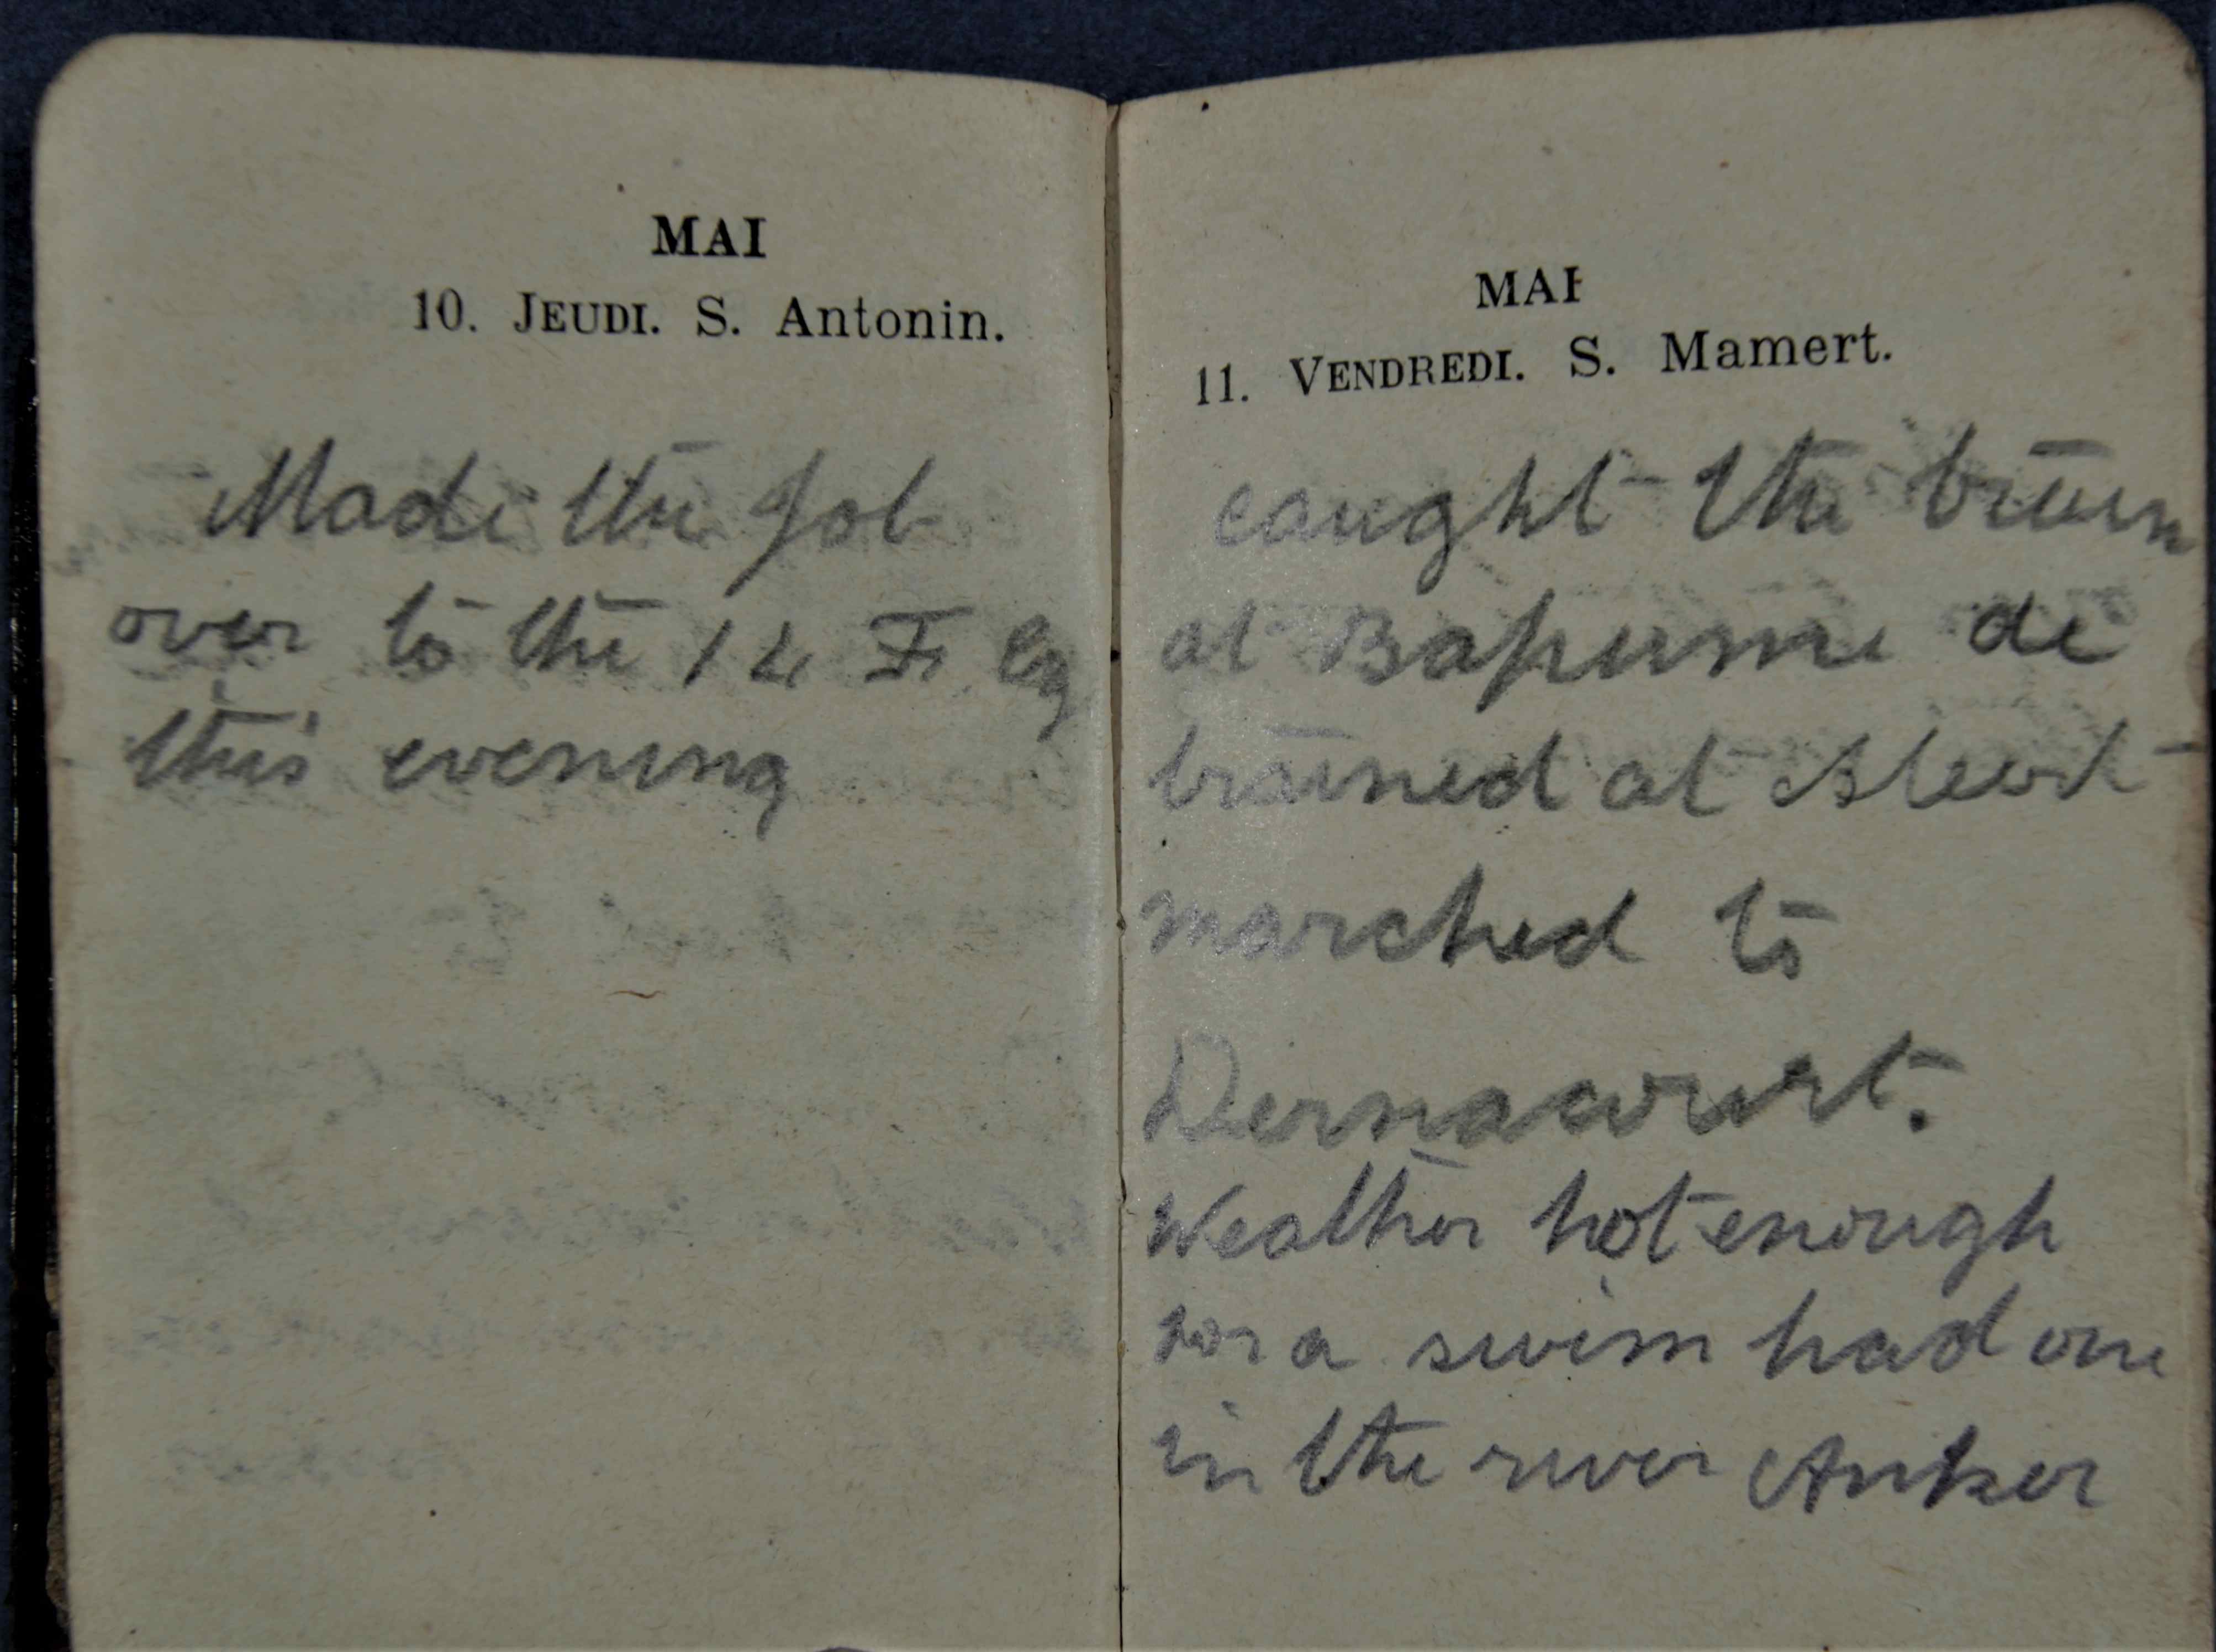 MAI
10. JEUDI. S. Antonin.
Made the job
over to the 14 F. Coy
this evening
MAI
11. VENDREDI. S. Mamert.
caught the train
at Bapume de
trained at
marched to
Dernacourt.
Weather hot enough
for a swim had one
in the river Anker